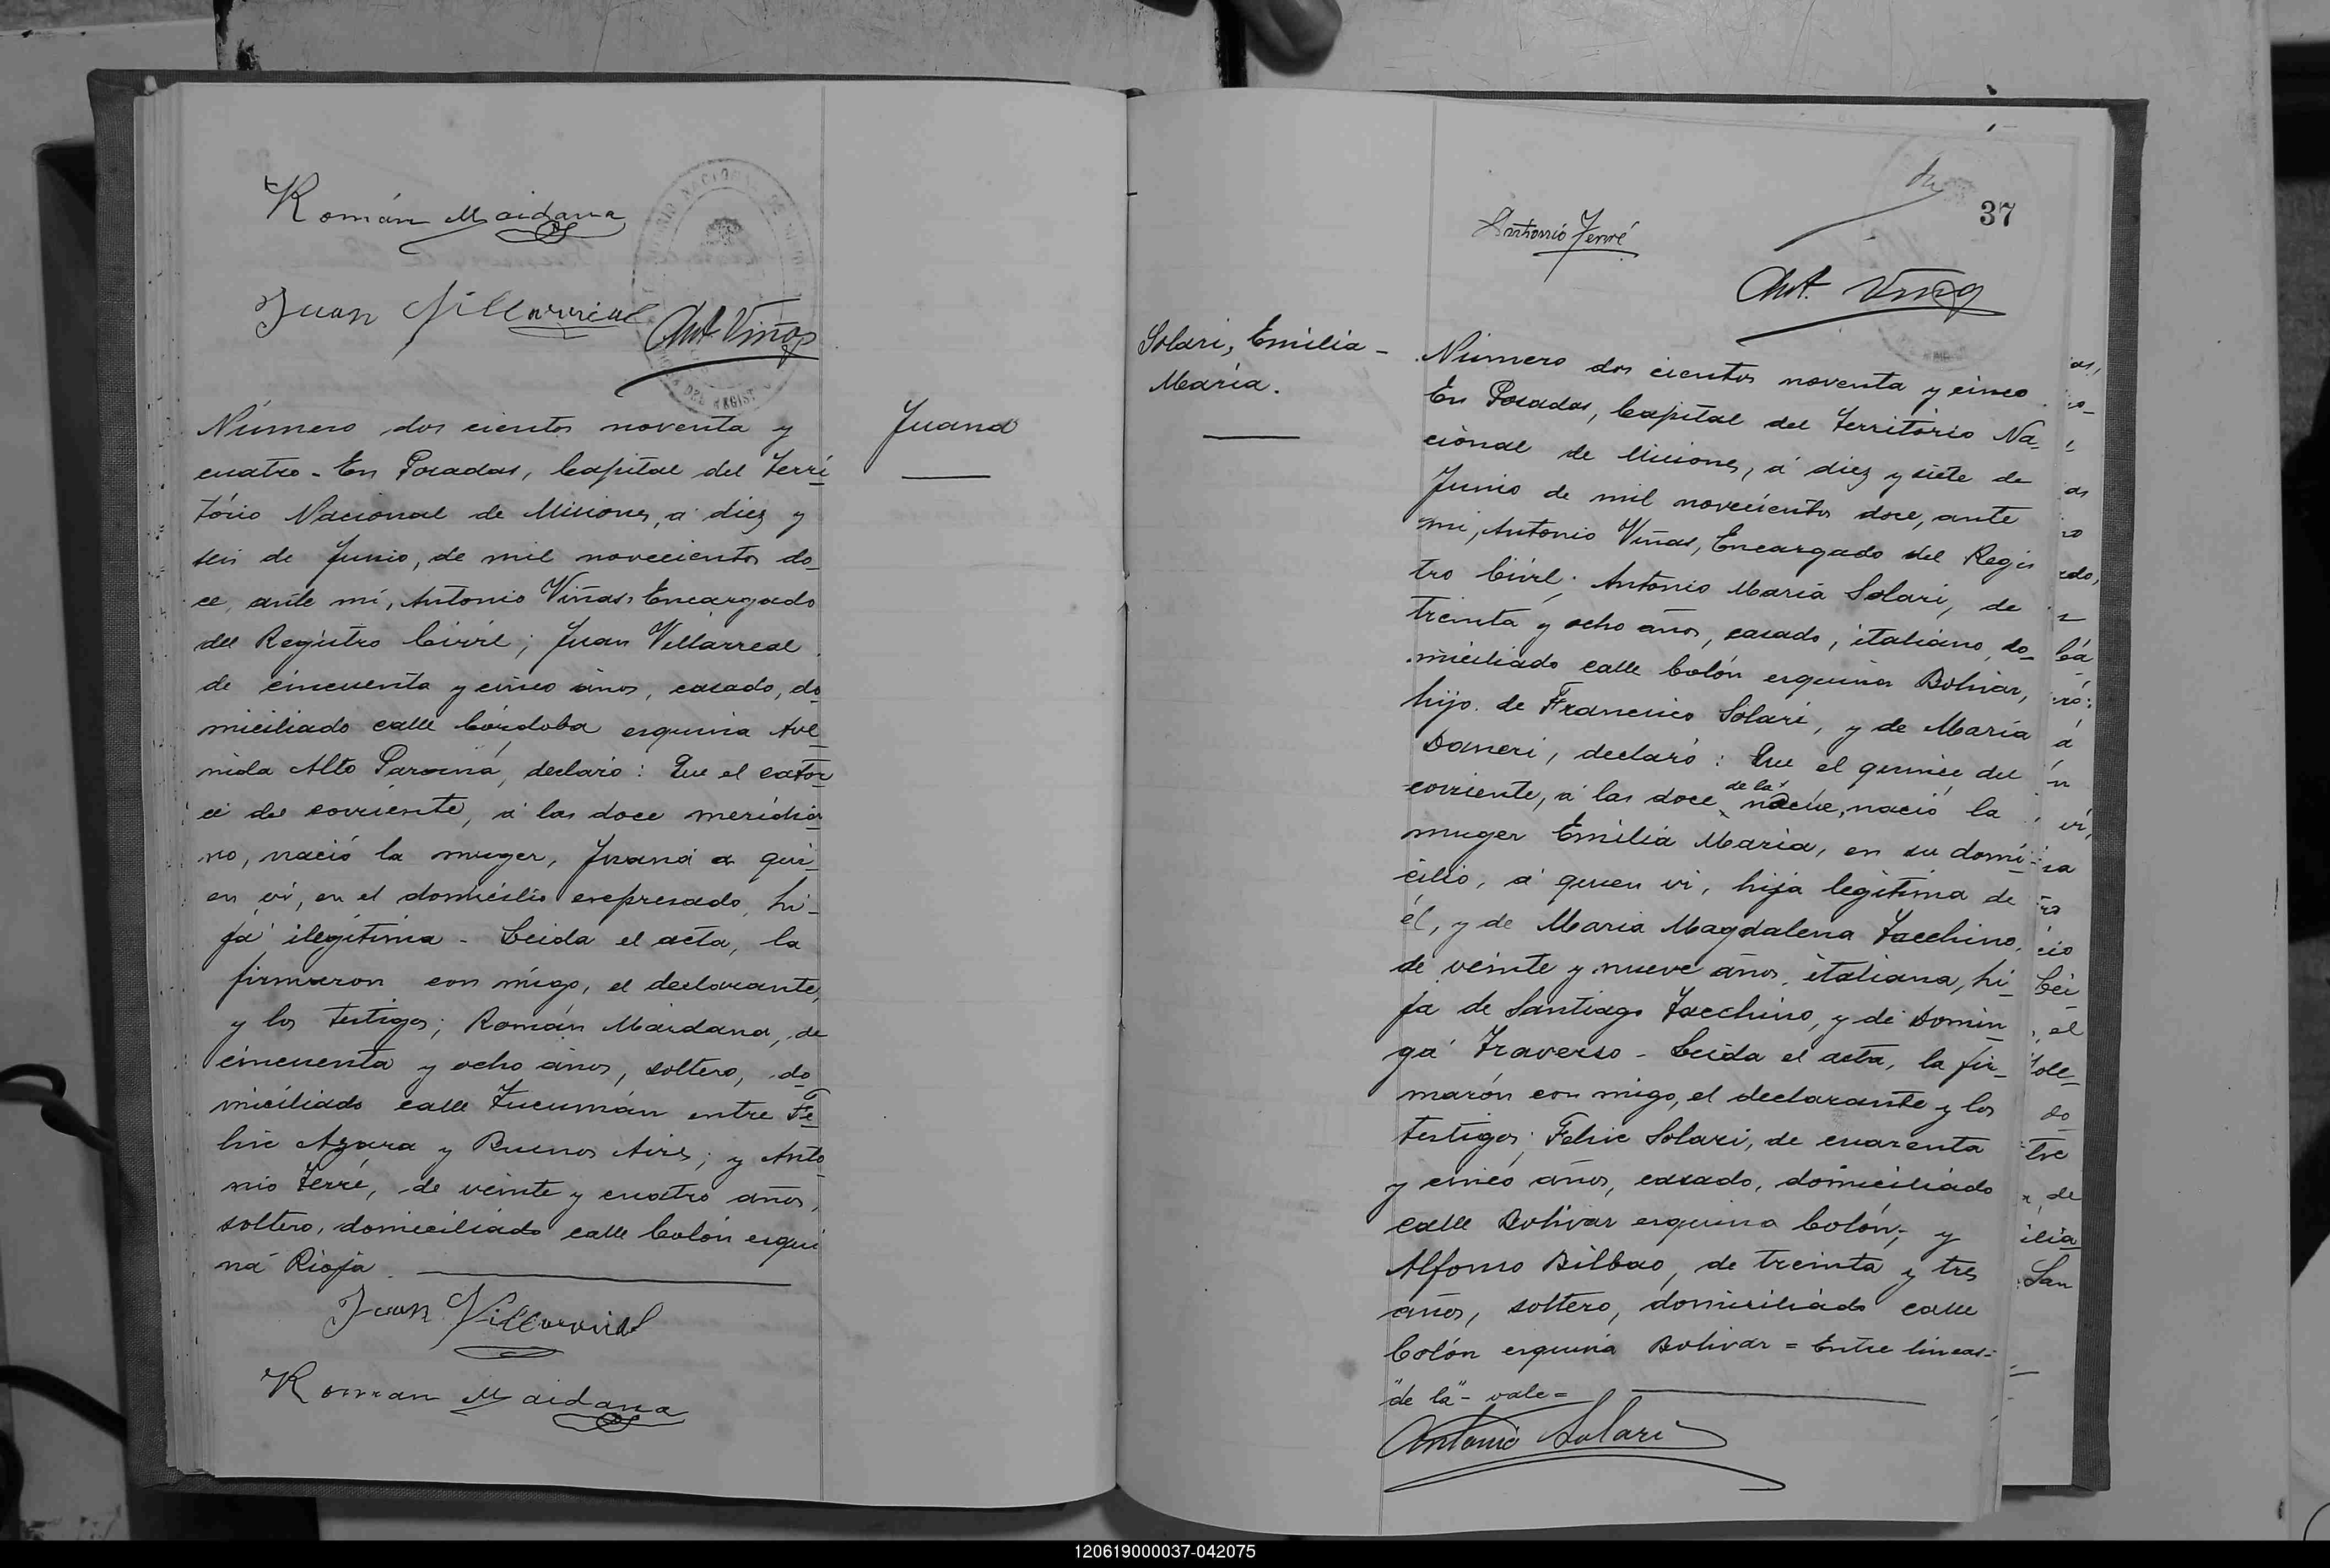 Román Maidana
Juan Villarreal
Ant. Viñas
Número dos cientos noventa y
cuatro - En Posadas, Capital del Terri
tório Nacional de Misiones, á diez y
seis de Junio, de mil novecientos do_
ce, ante mí, Antonio Viñas, Encargado
del Registro Civil; Juan Villarreal
de cincuenta y cinco años, casado, do
miciliado calle Córdoba esquina Ave_
nida Alto Paraná, declaró: Que el cator
ce del corriente, á las doce meridia_
no, nació la muger, Juana a qui_
en ví, en el domicilio expresado, hi_
ja ilegítima - Leida el acta, la
firmaron con migo, el declarante,
y los testigos; Román Maidana, de
cincuenta y ocho años, soltero, do
miciliado calle Tucumán entre Fé
lix Azara y Buenos Aires; y Anto
nio Ferré, de veinte y cuatro años,
soltero, domiciliado calle Colón esqui
na Rioja.
Juan Villarreal
Roman Maidana
Juana
37
Antonio Ferré
Ant. Viñas
Solari, Emilia -
María.
Número dos cientos noventa y cinco.
En Posadas, Capital del Território Na_
cional de Misiones, á diez y siete de
Junio de mil novecientos doce, ante
mi, Antonio Viñas, Encargado del Regis
tro Civil; Antonio María Solari, de
treinta y ocho años, casado, italiano, do_
miciliado calle Colón esquina Bolívar,
hijo de Francisco Solari, y de María
Daneri, declaró: Que el quince del
de la
corriente, á las doce noche, nació la
muger Emilia María, en su domi_
cilio, á quien ví, hija legítima de
él, y de María Magdalena Tacchino,
de veinte y nueve años, italiana, hi_
ja de Santiago Tacchino, y de Domin_
ga Traverso - Leida el acta, la fir_
marón con migo, el declarante y los
testigos; Felix Solari, de cuarenta
y cinco años, casado, domiciliado
calle Bolívar esquina Colón; y
Alfonso Bilbao, de treinta y tres
años, soltero, domiciliado calle
Colón esquina Bolívar = Entre líneas=
"de la" - vale =
Antonio Solari
120619000037-042075